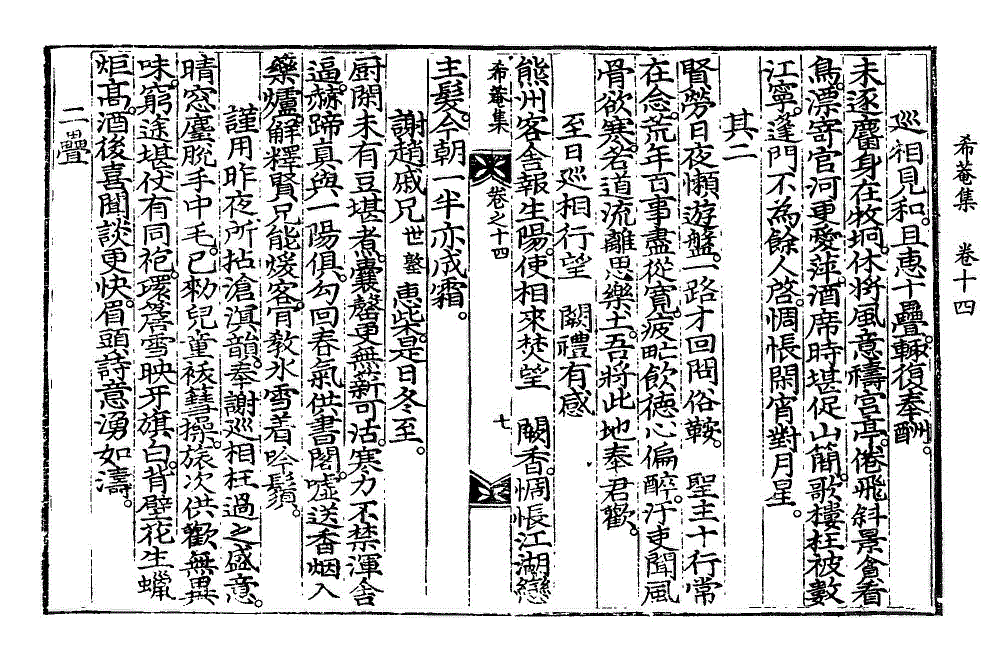 希菴集　卷十四
巡相見和。且惠十疊。輒復奉酬。
未逐麕身在牧坰。休將風意禱宮亭。倦飛斜景貪看
鳥。漂寄官河更愛萍。酒席時堪促山簡。歌樓枉被數
江寧。蓬門不為餘人啓。惆悵閑宵對月星。
其二
賢勞日夜懶遊盤。一路才回問俗鞍。　聖主十行常
在念。荒年百事盡從寬。疲甿飮德心偏醉。汙吏聞風
骨欲寒。名道流離思樂土。吾將此地奉君歡。
至日巡相行望　闕禮有感
熊州客舍報生陽。使相來焚望　闕香。惆悵江湖戀
希菴集　卷之十四　七
主髮。今朝一半亦成霜。
謝趙戚兄世鏊惠柴。是日冬至。
厨閑未有豆堪煮。囊罄更無薪可沽。寒力不禁渾舍
逼。赫蹄眞與一陽俱。勾回春氣供書閣。噓送香烟入
藥爐。解釋賢兄能煖客。肯敎氷雪着吟鬚。
謹用昨夜所拈滄溟韻。奉謝巡相枉過之盛意。
晴窓塵脫手中毛。已勑兒童袯彗操。旅次供歡無異
味。窮途堪仗有同袍。環簷雪映牙旗白。背壁花生蠟
炬高。酒後喜聞談更快。眉頭詩意湧如濤。
二疊